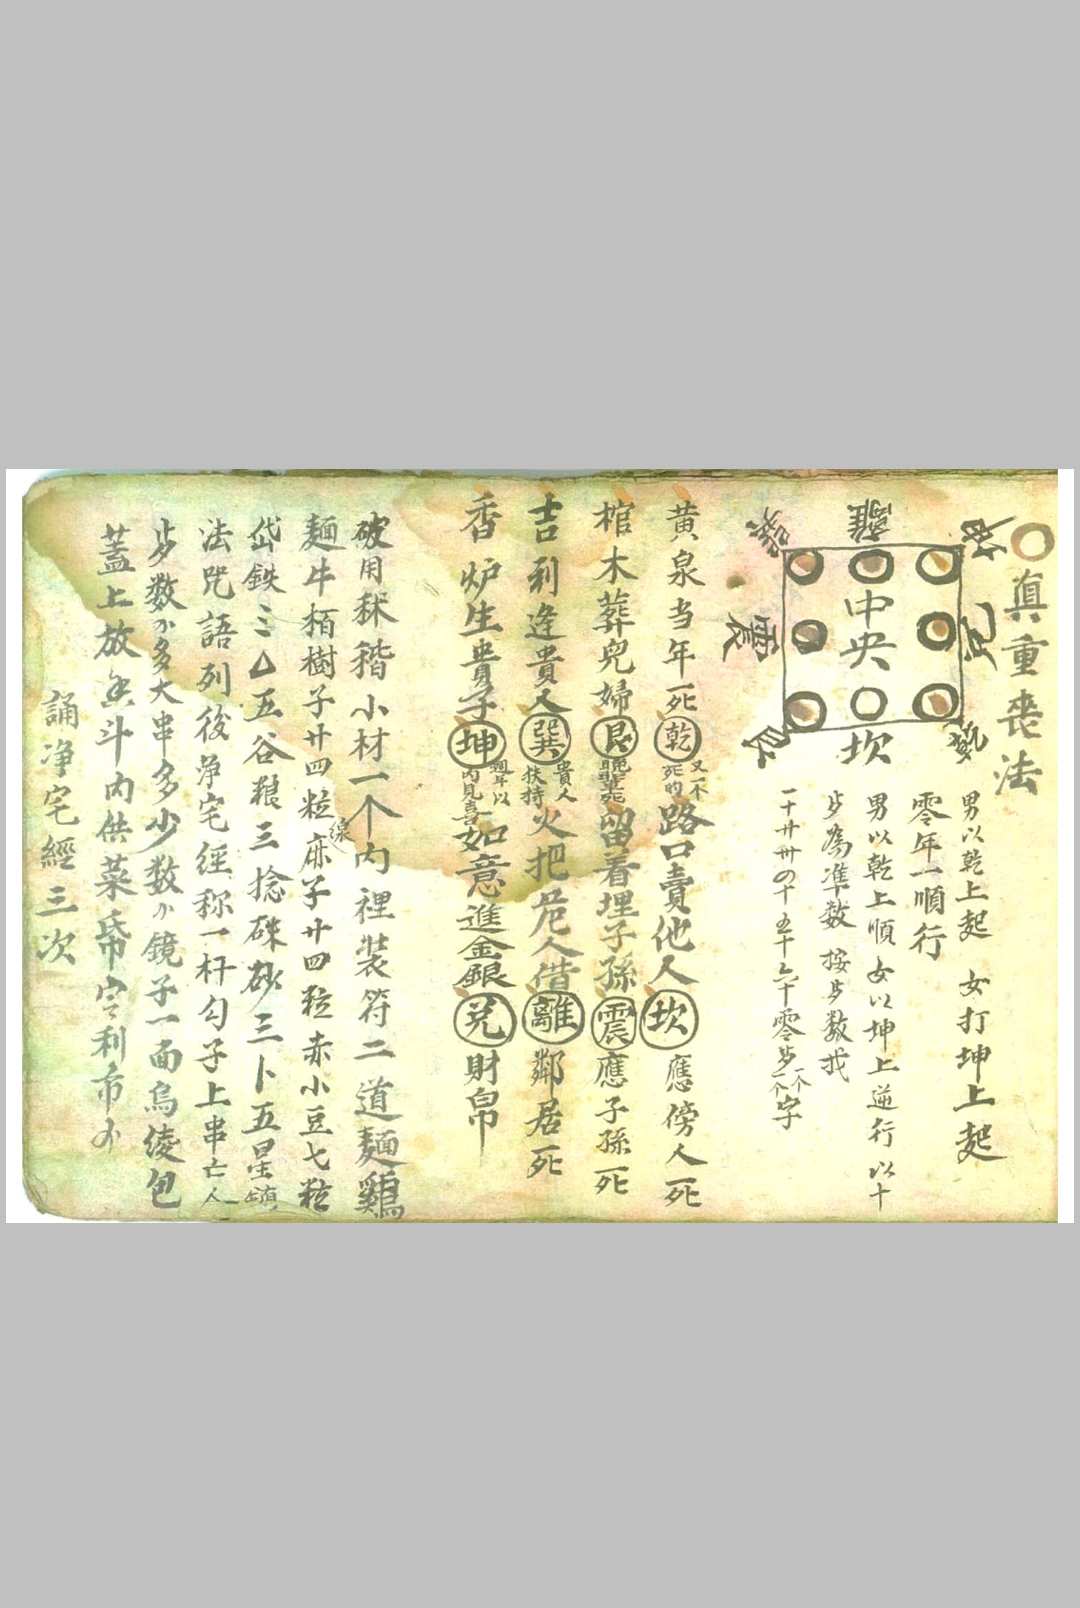 真重喪法
坤 兌 乾
離 中央 坎
巽 震 艮
男以乾上起 女打坤上起
零年一順行
男以乾上順女以坤上逆行以十
步為準數按步數找
一十廿卅四十五十六十零步一个字
黃泉当年死乾又一不死的路口賣他人坎應傍人死
棺木葬兒婦艮留着埋子孫震應子孫死
吉利逢貴人巽貴人扶持火把危人借離鄰居死
香炉生貴子坤週年以內見喜如意進金銀兌財帛
破用秫稭小材一个內裡装符二道麵鷄
麵牛栢樹子廿四粒麻子廿四粒赤小豆七粒
岱鉄三 五谷粮三捻硃砂三卜五星鎮
法咒語列後淨宅經称一杆勾子上串亡人
步数 多大串多少数 鏡子一面烏綾包
蓋上放 斗內供菜 字利市
誦净宅經三次